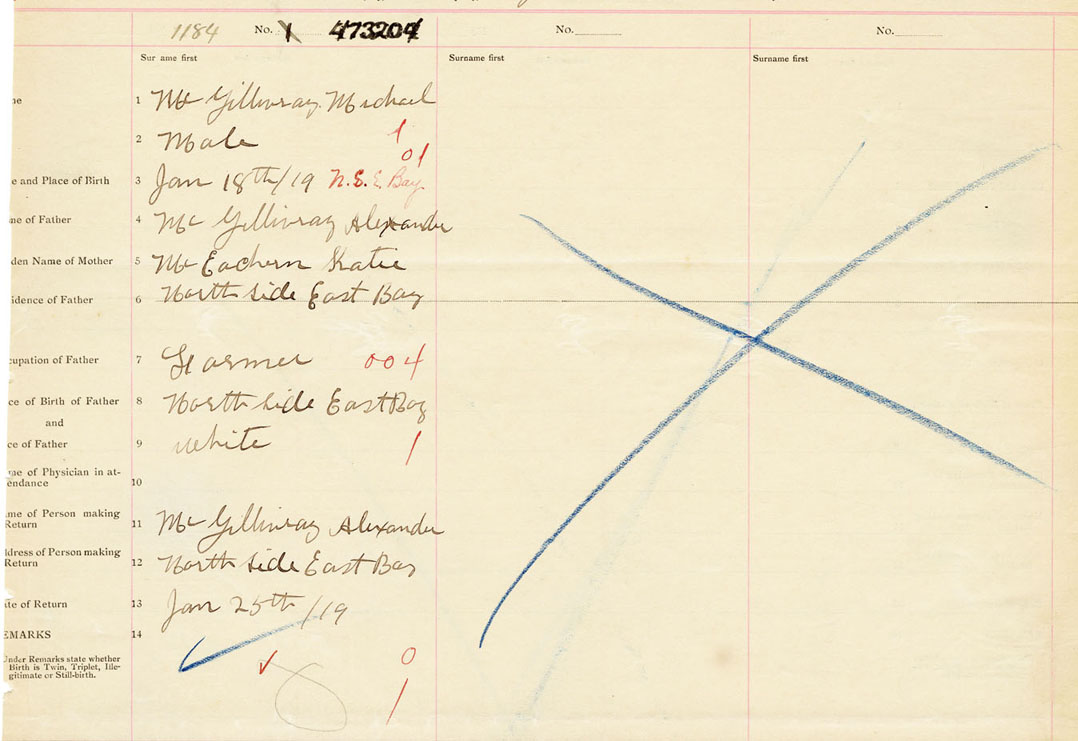 1184 No. 1 473204 No. No.
Sur ame first Surname first Surname first
ne 1 Mc Gillivray Michael
2 Male 1
01
e and Place of Birth 3 Jan 18th/19 N.S.E. Bay
ne of Father 4 Mc Gillivray Alexander
den Name of Mother 5 Mc Eachern Katie
idence of Father 6 North side East Bay
cupation of Father 7 Farmer 004
ce of Birth of Father 8 North side East Bay
and
ce of Father 9 white 1
me of Physician in at-
endance 10
me of Person making
Return 11 Mc Gillivray Alexander
ddress of Person making
Return 12 North side East Bay
te of Return 13 Jan 25th/19
EMARKS 14
Under Remarks state whether
Birth is Twin, Triplet, Ille-
gitimate or Still-birth.
0
1